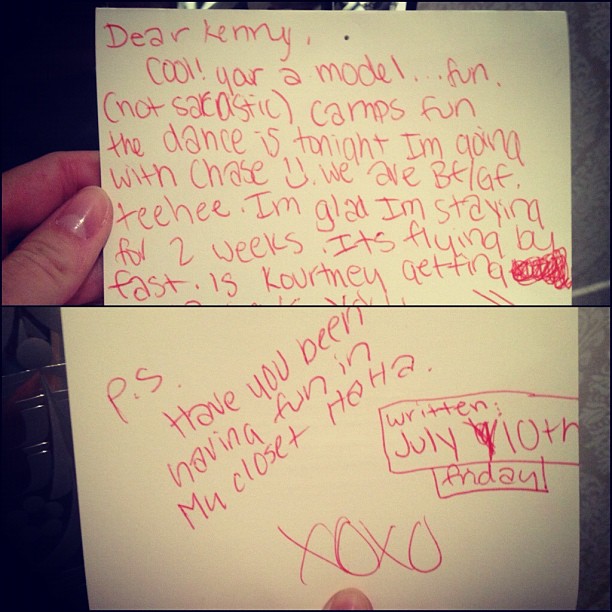 Dear Kenny,
Cool! your a model...fun.
(not sarcastic) camps fun
the dance is tonight Im going
with Chase U. we are Bf/Gf.
teehee. Im glad Im staying
for 2 weeks. Its flying by
fast. is Kourtney getting
P.S.
Have you been
having fun in
My closet HaHa.
written:
July 10th
friday
XOXO